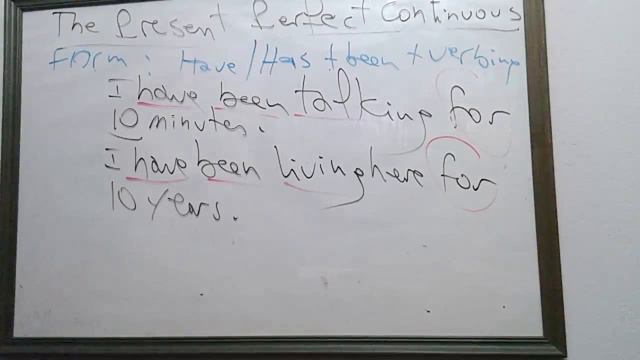 The Present Perfect Continuous
Form: Have/Has + been + verbing
I have been talking for
10 minutes.
I have been living here for
10 years.